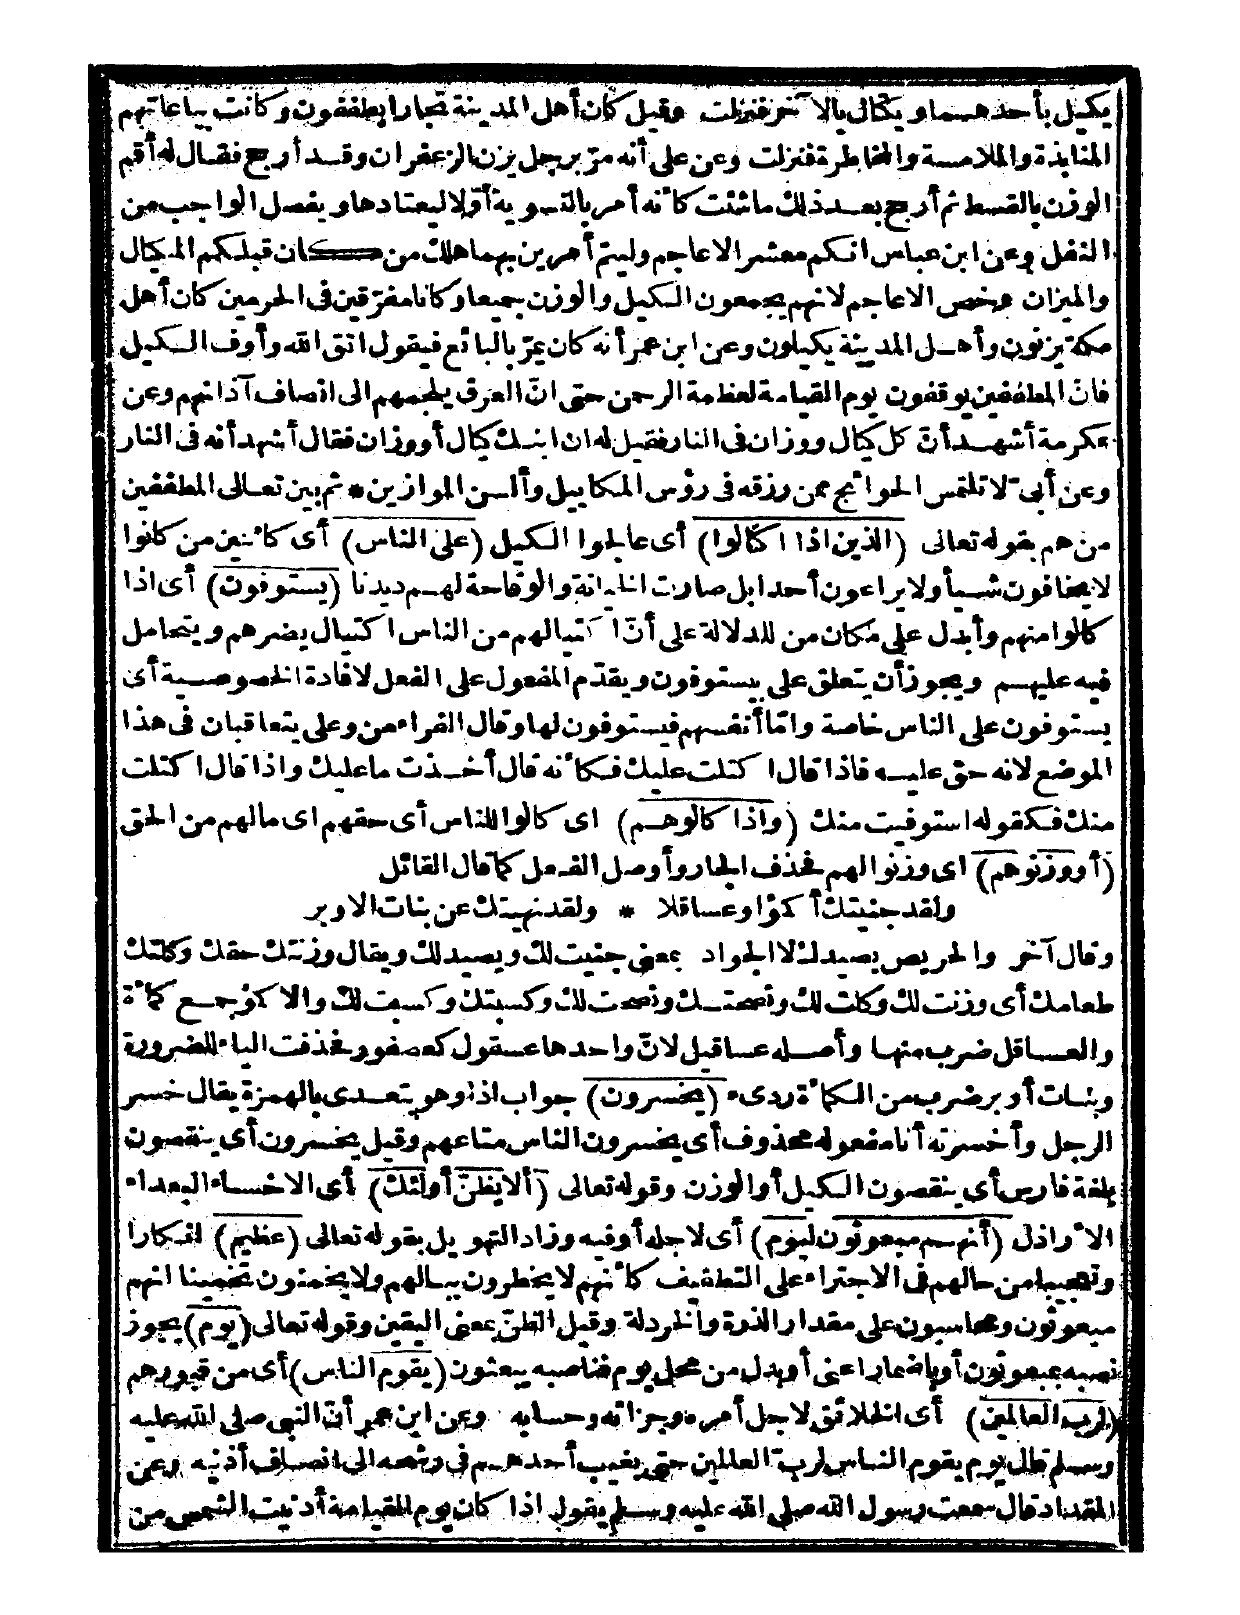 يكيل بأحدهما ويكتال بالآخر فنزلت وقيل كان أهل المدينة تجارا يطففون وكانت بياعاتهم
المنابذة والملامسة والمخاطرة فنزلت وعن علي أنه مرّ برجل يزن الزعفران وقد أرجح فقال له أقم
الوزن بالقسط ثم أرجح بعد ذلك ما شئت كأنه أمر بالتسوية أوّلا ليعتادها ويفصل الواجب من
النفل وعن ابن عباس انكم معشر الاعاجم وليتم أمرين بهما هلك من كان قبلكم المكيال
والميزان وخص الاعاجم لانهم يجمعون الكيل والوزن جميعا وكانا مفرّقين في الحرمين كان أهل
مكة يزنون وأهل المدينة يكيلون وعن ابن عمر أنه كان يمرّ بالبائع فيقول اتق الله وأوف الكيل
فانّ المطففين يوقفون يوم القيامة لعظمة الرحمن حتى انّ العرق يلجمهم الى انصاف آذانهم وعن
عكرمة أشهد أنّ كل كيال ووزان في النار فقيل له ان ابنك كيال أو وزان فقال أشهد أنه في النار
وعن أبيّ لا تلتمس الحوائج ممن رزقه في رؤس المكاييل وألسن الموازين * ثم بين تعالى المطففين
من هم بقوله تعالى (الذين اذا اكتالوا) أى عالجوا الكيل (على الناس) أى كائنين من كانوا
لا يخافون شيأ ولا يراعون أحدا بل صارت الخيانة والوقاحة لهم ديدنا (يستوفون) أى اذا
كالوا منهم وأبدل على مكان من للدلالة على أنّ اكتيالهم من الناس اكتيال يضرهم ويتحامل
فيه عليهم ويجوز أن يتعلق على بيستوفون ويقدّم المفعول على الفعل لافادة الخصوصية أى
يستوفون على الناس خاصة وامّا أنفسهم فيستوفون لها وقال الفراء من وعلى يتعاقبان فى هذا
الموضع لانه حق عليه فاذا قال اكتلت عليك فكأنه قال أخذت ما عليك واذا قال اكتلت
منك فكقوله استوفيت منك (واذا كالوهم) اى كالوا للناس أى حقهم اى مالهم من الحق
(أو وزنوهم) اى وزنوا لهم فحذف الجار وأوصل الفعل كما قال القائل
ولقد جنيتك أكمؤا وعساقلا * ولقد نهيتك عن بنات الاوبر
وقال آخر والحريص يصيدك لا الجواد بمعنى جنيت لك ويصيد لك ويقال وزنتك حقك وكلتك
طعامك أى وزنت لك وكلت لك ونصحتك ونصحت لك وكسبتك وكسبت لك والاكمؤ جمع كمأة
والعساقل ضرب منها وأصله عساقيل لانّ واحدها عسقول كعصفور فحذفت الياء للضرورة
وبنات أوبر ضرب من الكمأة ردىء (يخسرون) جواب اذا وهو يتعدى بالهمزة يقال خسر
الرجل وأخسرته أنا مفعوله محذوف أى يخسرون الناس متاعهم وقيل يخسرون أى ينقصون
بلغة فارس أى ينقصون الكيل أو الوزن وقوله تعالى (ألا يظنّ أولئك) أى الاخساء البعداء
الاراذل (أنهم مبعوثون ليوم) أى لاجله أو فيه وزاد التهويل بقوله تعالى (عظيم) انكارا
وتعجيبا من حالهم فى الاجتراء على التطفيف كأنهم لا يخطرون ببالهم ولا يخمنون تخمينا انهم
مبعوثون ومحاسبون على مقدار الذرة والخردلة وقيل الظنّ بمعنى اليقين وقوله تعالى (يوم) يجوز
نصبه بمبعوثون أو باضمار اعنى أو بدل من محل يوم فناصبه يبعثون (يقوم الناس) أى من قبورهم
(لرب العالمين) أى الخلائق لاجل أمره وجزائه وحسابه وعن ابن عمر أنّ النبى صلى الله عليه
وسلم قال يوم يقوم الناس لربّ العالمين حتى يغيب أحدهم فى رشحه الى انصاف أذنيه وعن
المقداد قال سمعت رسول الله صلى الله عليه وسلم يقول اذا كان يوم القيامة أدنيت الشمس من